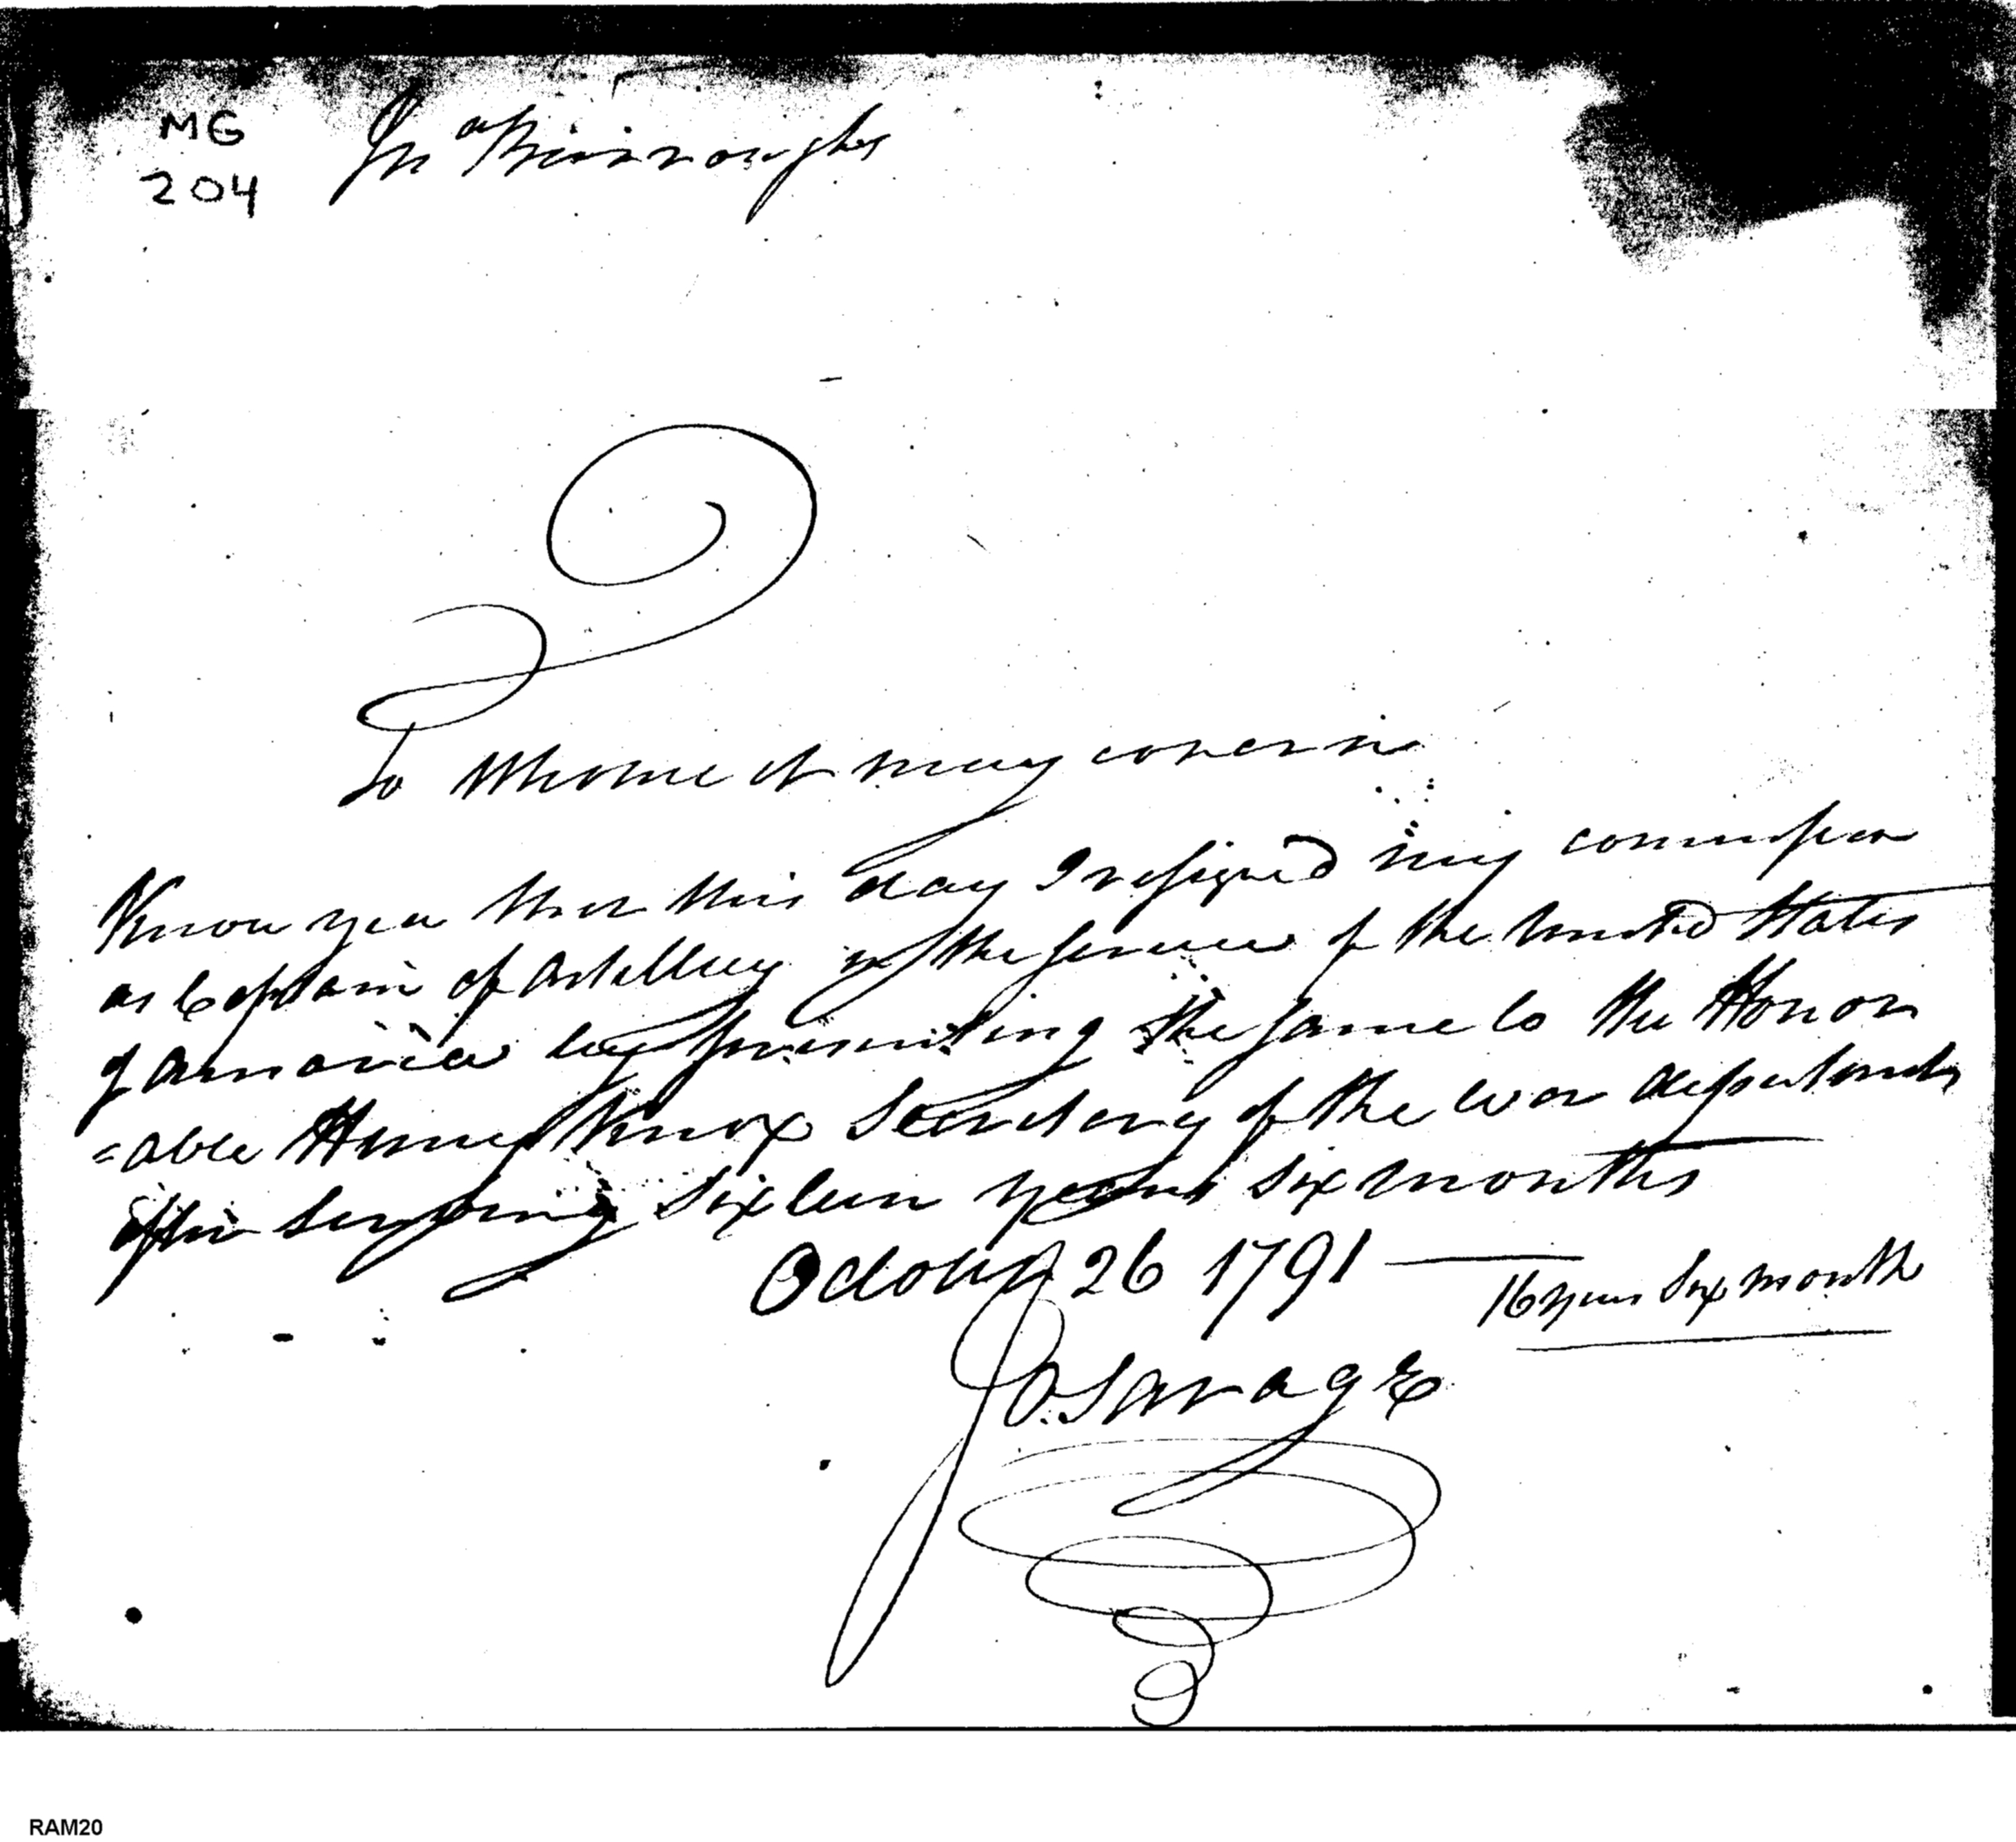 MG
204
Jnᵃ Burroughs
To Whome it may concern
Know you that this day I resigned my commission
as Captain of Artillery in the service of the United States
of America by presenting the same to the Honor
=able Henry Knox Secretary of the war department
after serving sixteen years six months
October 26 1791
16 years Six month
Jo. Savage
RAM20